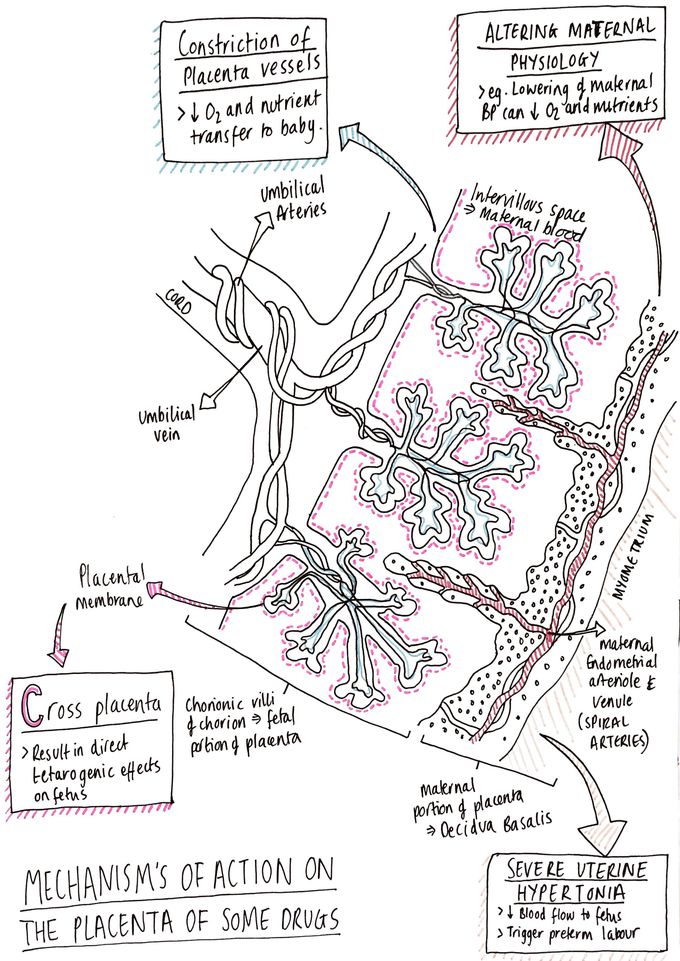 Constriction of
Placenta vessels
> ↓ O₂ and nutrient
transfer to baby.
ALTERING MATERNAL
PHYSIOLOGY
> eg. Lowering of maternal
BP can ↓ O₂ and nutrients
Umbilical
Arteries
Intervillous space
⇒ Maternal blood
CORD
Umbilical
vein
MYOMETRIUM
Placental
membrane
maternal
Endometrial
arteriole &
venule
(SPIRAL
ARTERIES)
Cross placenta
> Result in direct
tetarogenic effects
on fetus
Chorionic villi
of chorion ⇒ fetal
portion of placenta
maternal
portion of placenta
⇒ Decidua Basalis
MECHANISM'S OF ACTION ON
THE PLACENTA OF SOME DRUGS
SEVERE UTERINE
HYPERTONIA
> ↓ Blood flow to fetus
> Trigger preterm labour